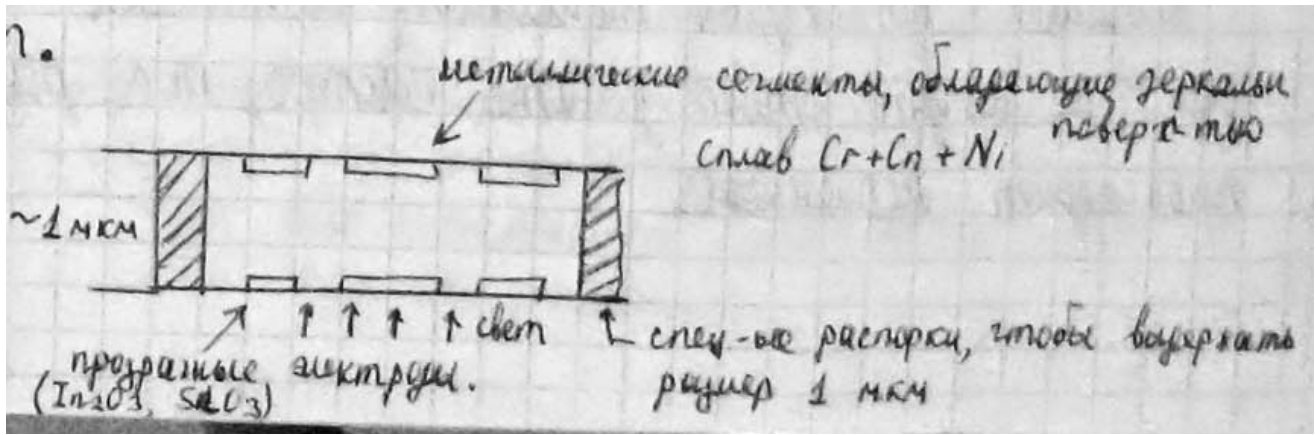 п.
металлические сегменты, обладающие зеркальн
поверх-тью
сплав Cr+Cn+Ni
~1 мкм
свет
прозрачные электроды.
(In2O3, SnO3)
спец-ые распорки, чтобы выдержать
размер 1 мкм